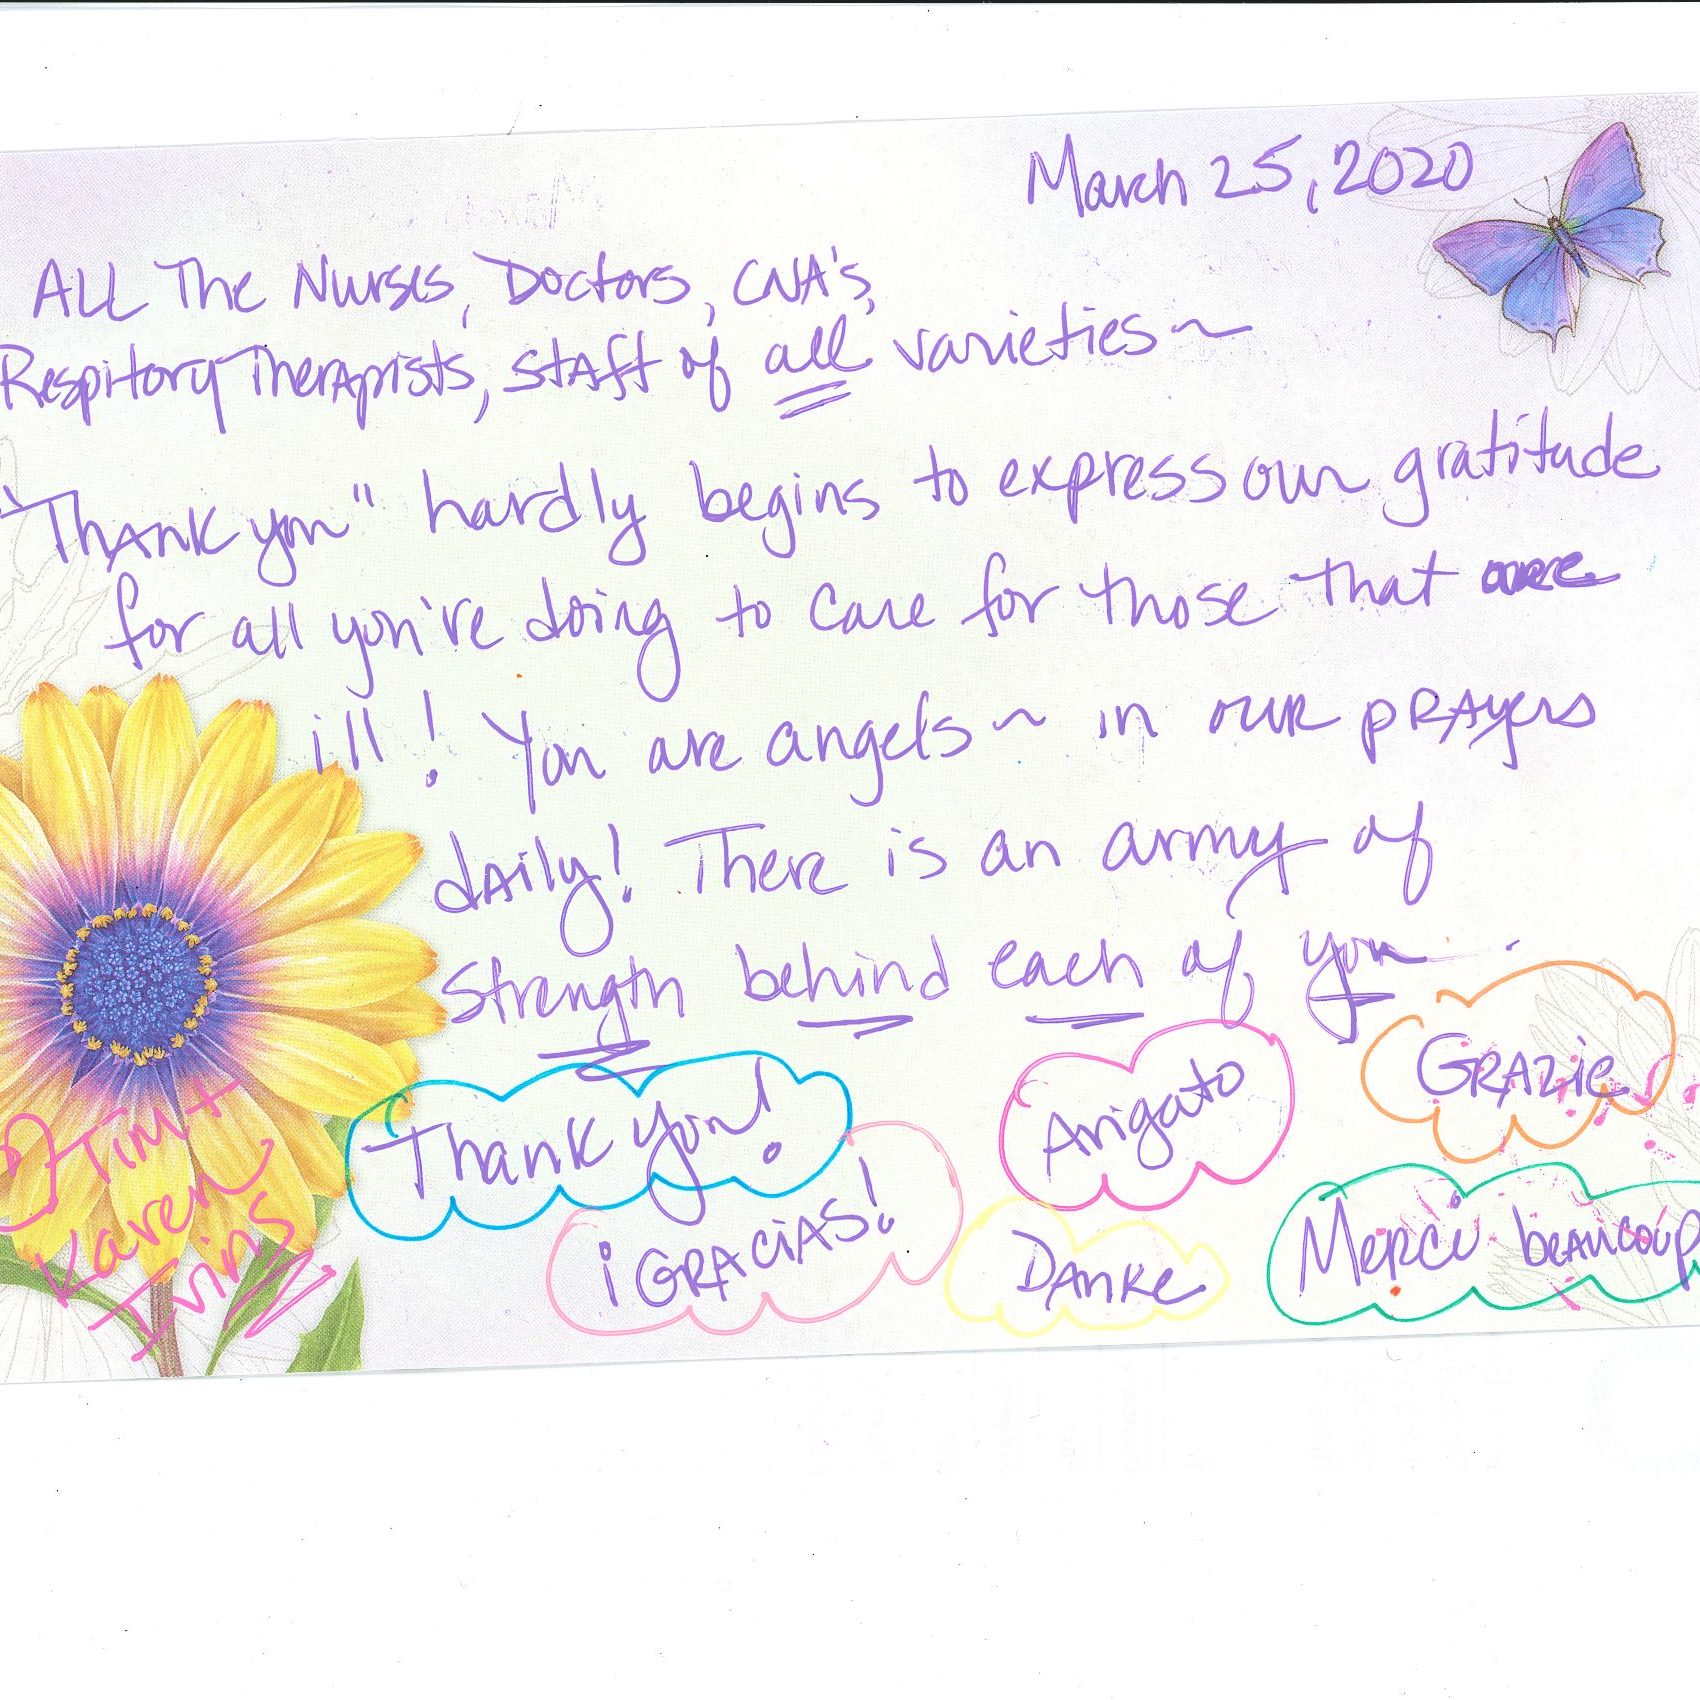 March 25, 2020
ALL The Nurses, Doctors, CNA's,
Respitory Therapists, staff of all varieties~
"Thank you" hardly begins to express our gratitude
for all you're doing to care for those that are
ill! You are angels~ in our prayers
daily! There is an army of
strength behind each of you.
Thank you!
Arigato
GRAZIE
¡GRACIAS!
Danke
Merci beaucoup
Tim +
Karen
Ivins